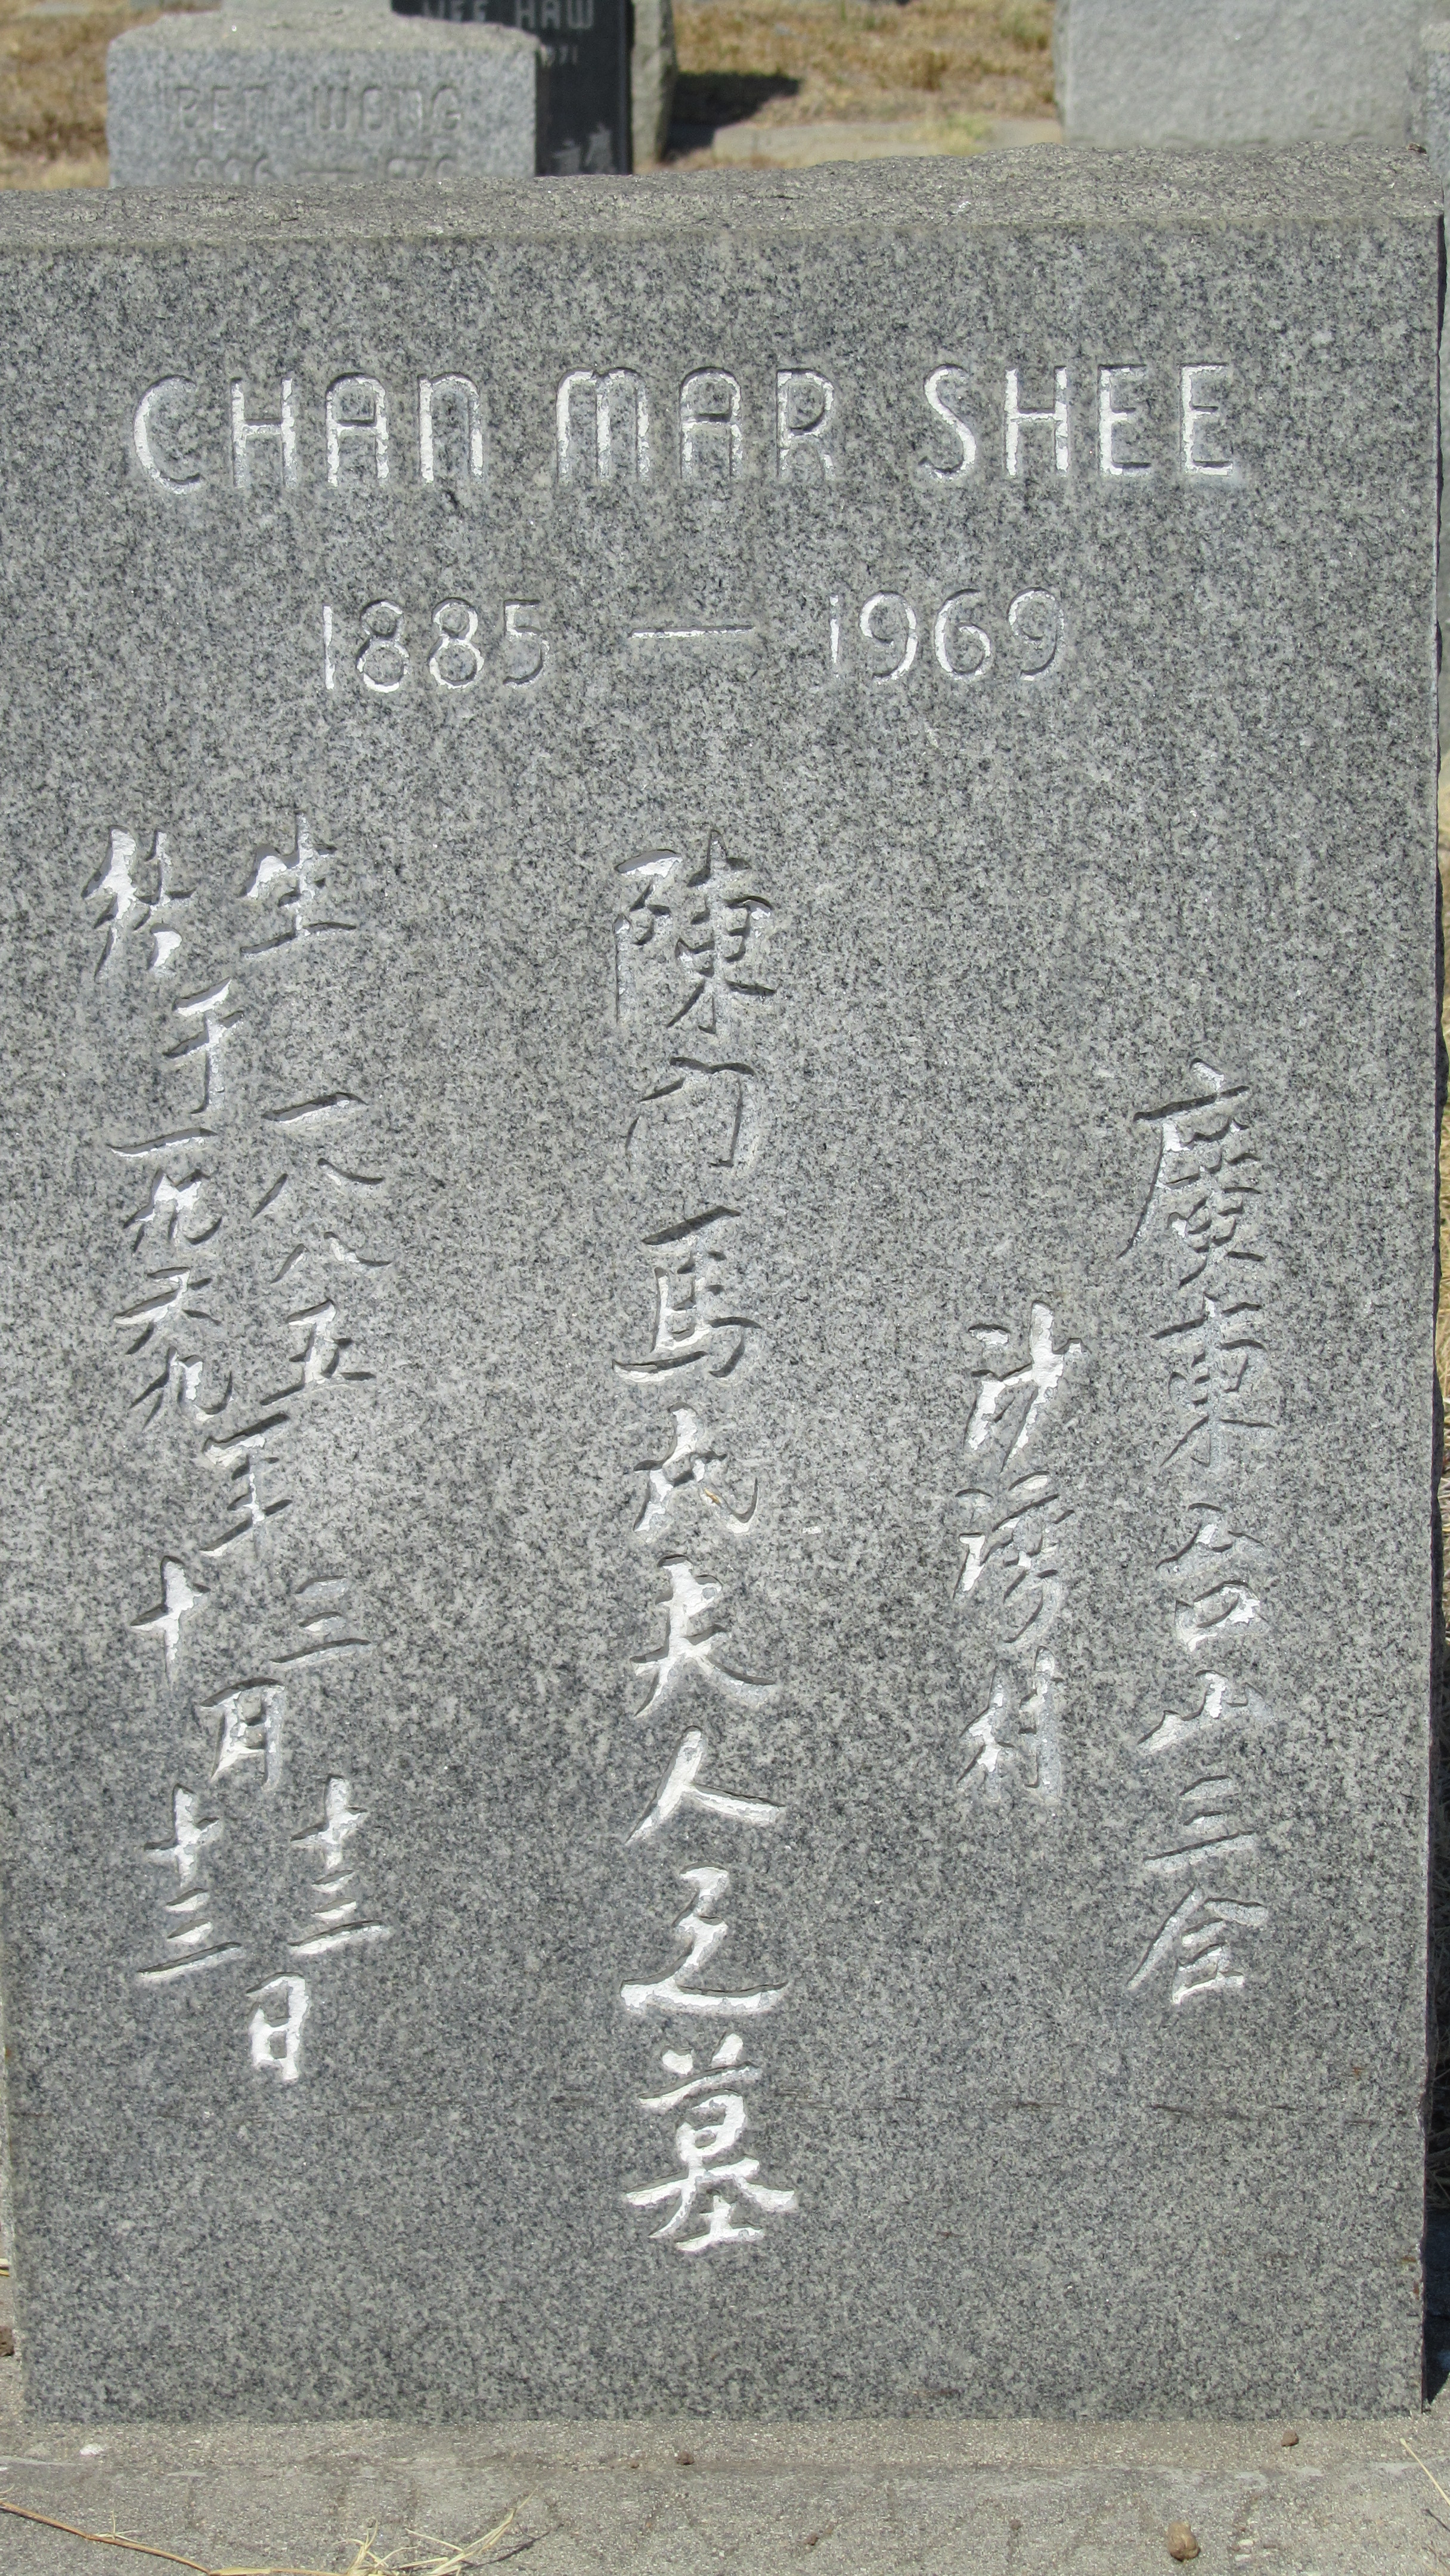 HAW
1971
BET WONG
CHAN MAR SHEE
1885 — 1969
廣東台山三合
村
陳門馬氏夫人之墓
生于一八八五年三月十三日
終于一九六九年十月十三日